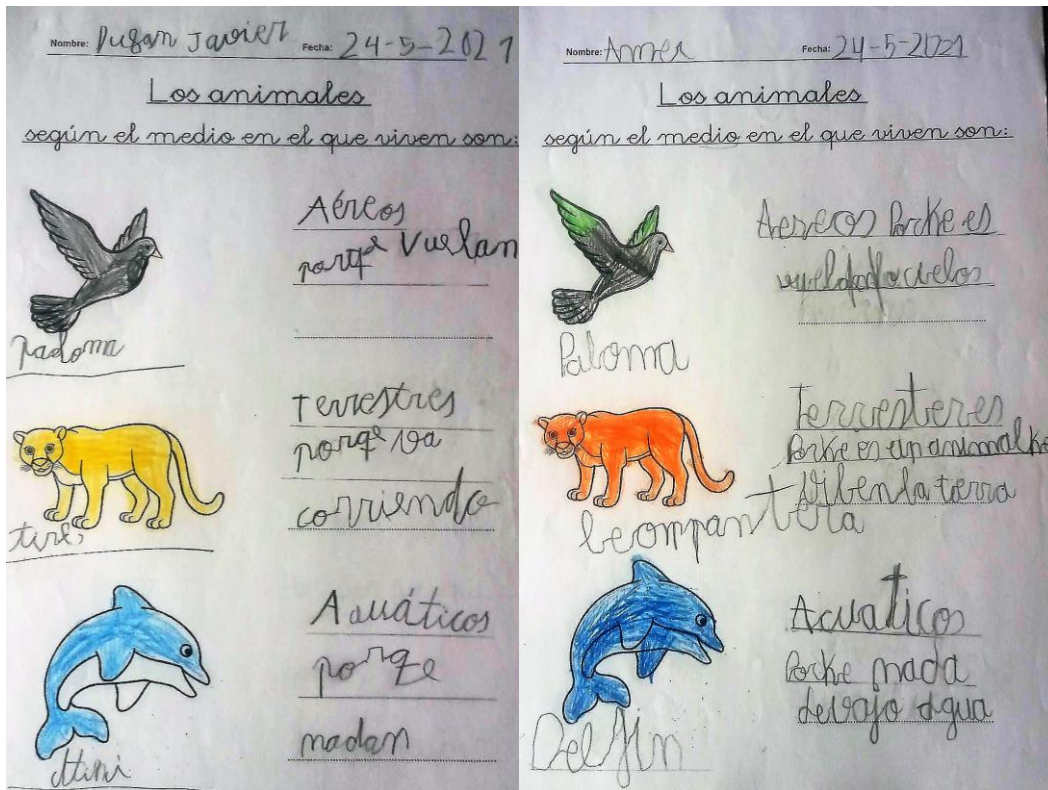 Nombre: Dugan Javier Fecha: 24-5-2021
Los animales
según el medio en el que viven son:
Aéreos
porqe Vuelan
padoma
terrestres
porqe va
corriendo
Aquáticos
porqe
nadan
Nombre: Fecha: 24-5-2021
Los animales
según el medio en el que viven son:
Aereos Porke es
Paloma
Terresteres
Porke es un animal ke
Viben la tierra
leompantera
Acuaticos
Porke nada
devajo agua
Delfin